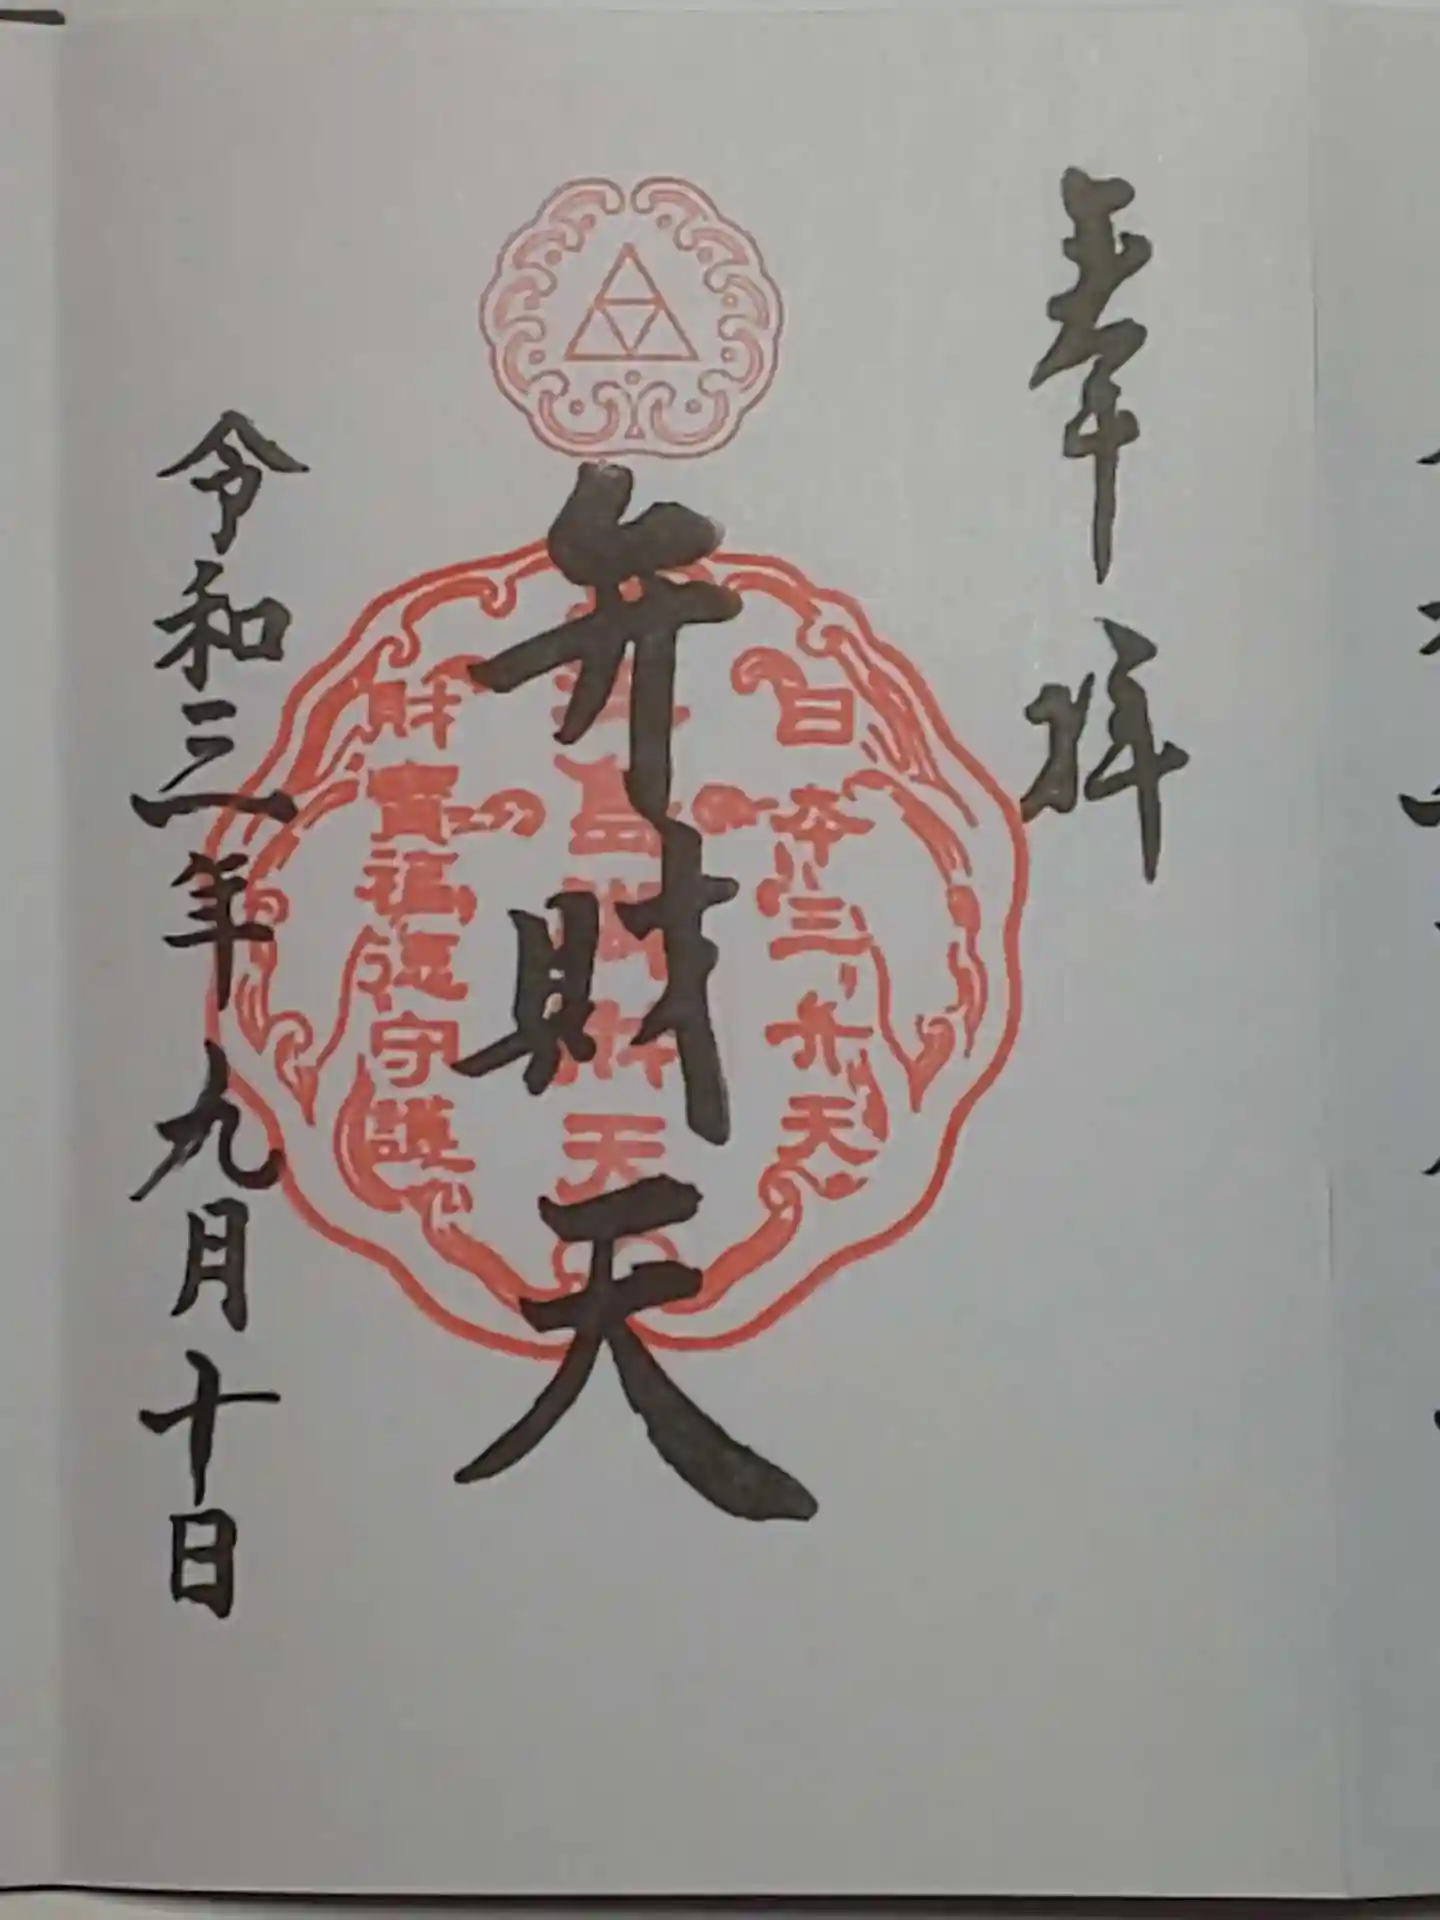 奉拝
日本三弁天
島弁財天
財寶福徳守護
弁財天
令和三年九月十日